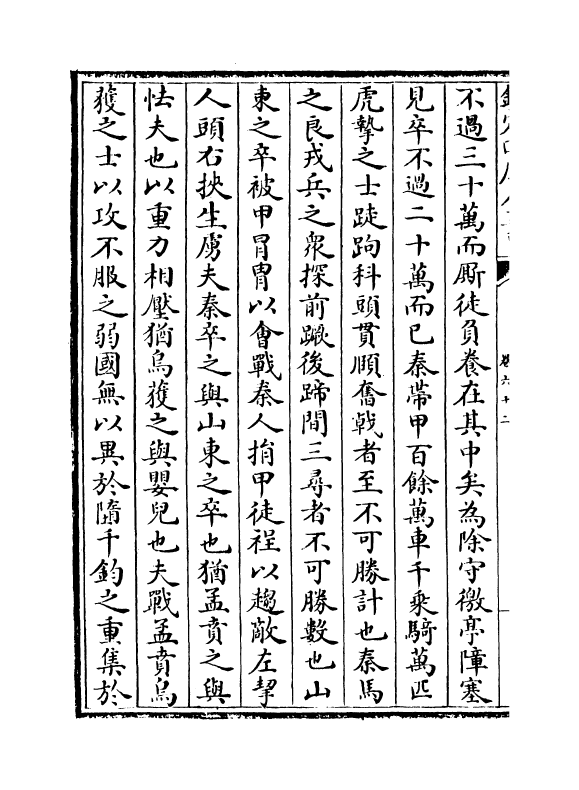 欽定四庫全書
卷六十二
不過三十萬而厮徒負養在其中矣為除守徼亭障塞
見卒不過二十萬而已秦帶甲百餘萬車千乘騎萬匹
虎摯之士跿跔科頭貫頤奮戟者至不可勝計也秦馬
之良戎兵之衆探前蹶後蹄間三尋者不可勝數也山
東之卒被甲冒胄以會戰秦人捐甲徒裎以趨敵左挈
人頭右挾生虜夫秦卒之與山東之卒也猶孟賁之與
怯夫也以重力相壓猶烏獲之與嬰兒也夫戰孟賁烏
獲之士以攻不服之弱國無以異於隨千鈞之重集於